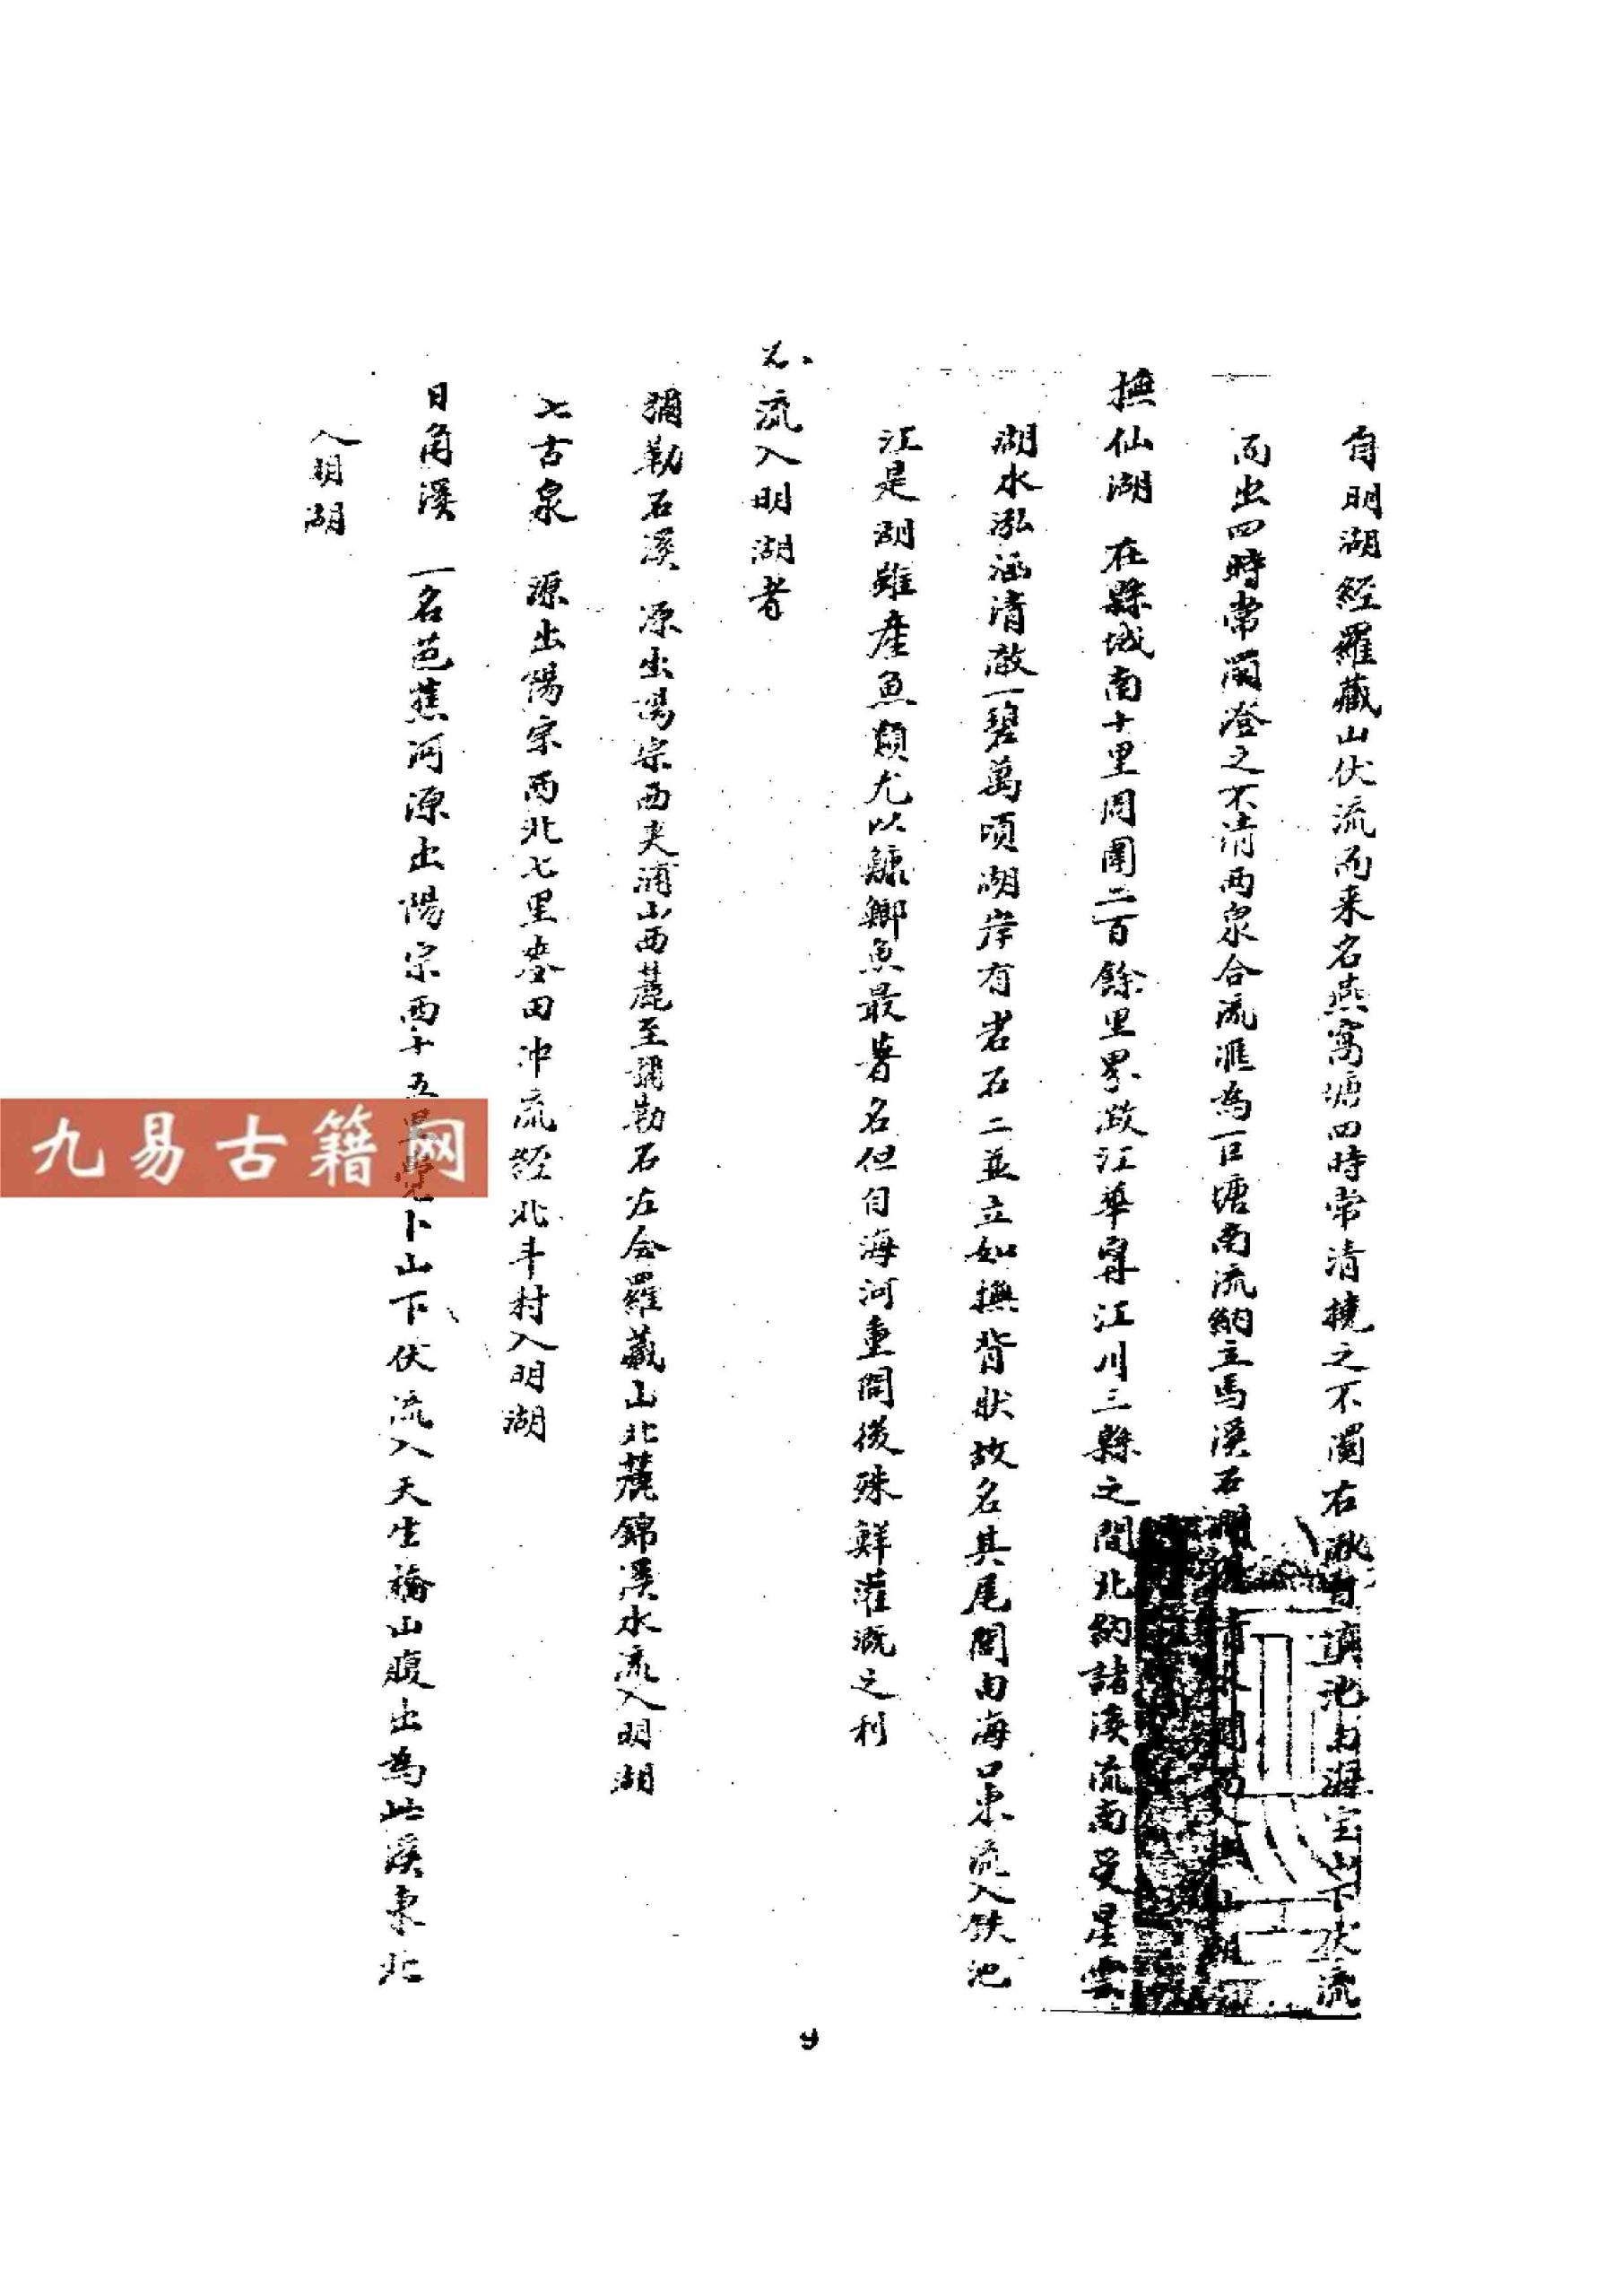 自明湖經羅藏山伏流而来名燕窩塘四時常清撓之不濁右湫自滇池由海宝山下伏流
而出四時常濁澄之不清两泉合流滙為一巨塘南流納立馬溪石
撫仙湖 在縣城南十里周圍二百餘里界澂江華寧江川三縣之間北納諸溪流南受星雲
湖水泓涵清澈一碧萬頃湖岸有岩石二並立如撫背狀故名其尾閭由海口東流入铁池
江是湖雖產魚類尤以鱇鱼最著名但自海河重開後殊鲜灌溉之利
乙、流入明湖者
彌勒石溪 源出陽宗西夹浦山西麓至彌勒石左会羅藏山北麓錦溪水流入明湖
七古泉 源出陽宗西北七里麥田冲流經北斗村入明湖
日角溪 一名芭蕉河源出陽宗西十五里卜山下伏流入天生橋山腹出為此溪東北
入明湖
九易古籍网